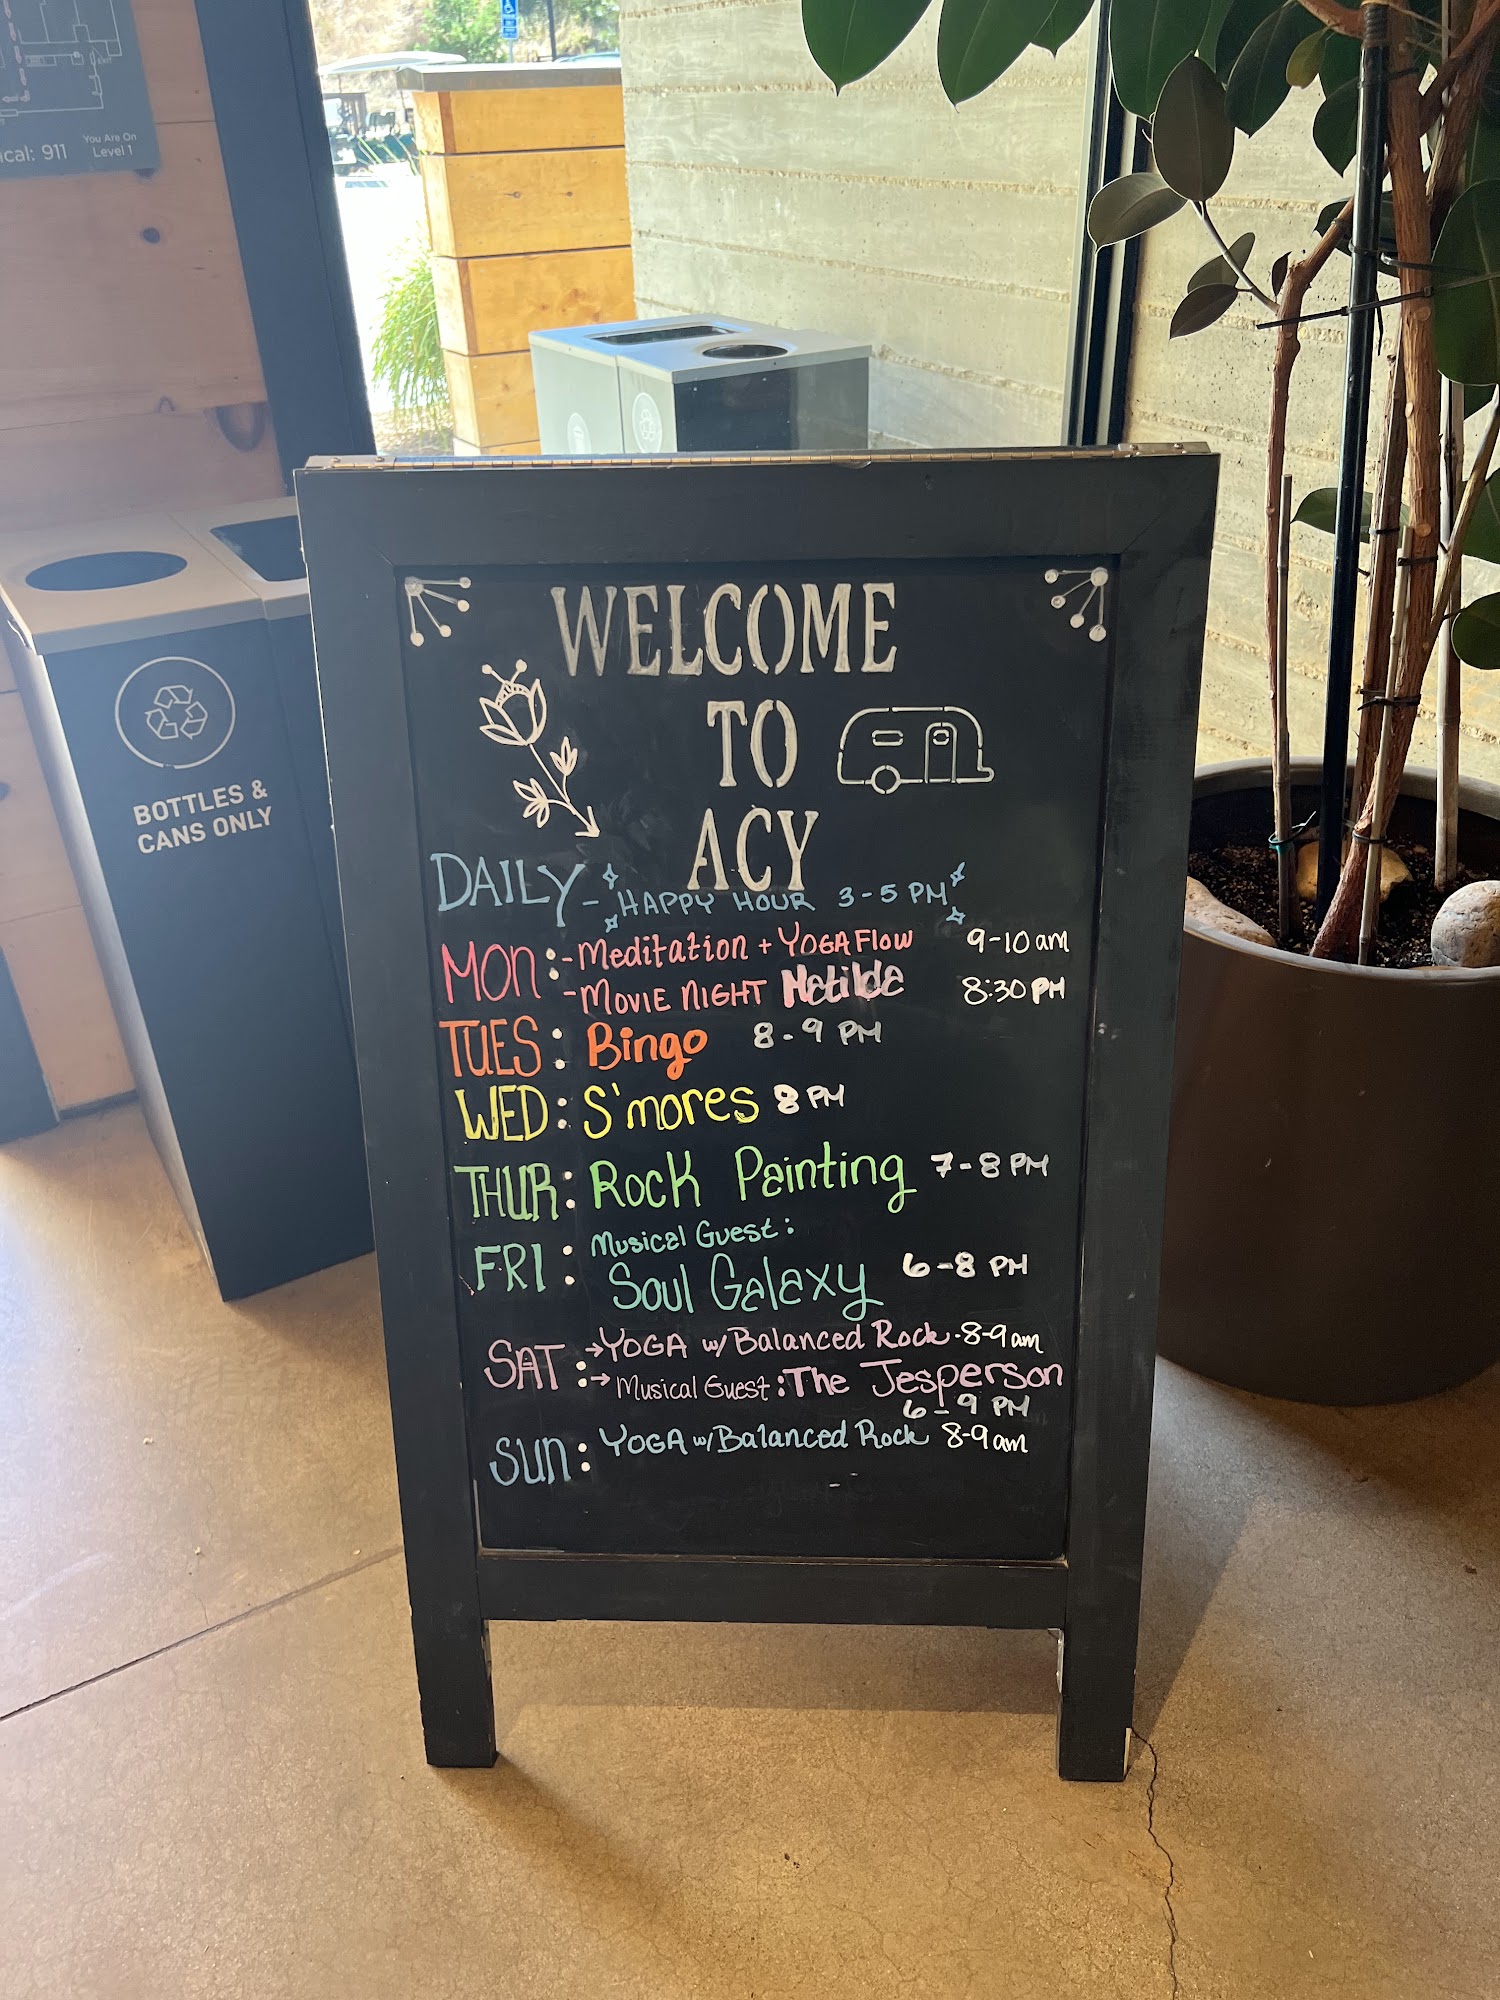 ical: 911
You Are On
Level 1
EXIT
BOTTLES &
CANS ONLY
WELCOME
TO
ACY
DAILY - HAPPY HOUR 3-5 PM
MON: - Meditation + YOGA Flow 9-10 am
- MOVIE NIGHT Matilda 8:30 PM
TUES: Bingo 8-9 PM
WED: S'mores 8 PM
THUR: Rock Painting 7-8 PM
FRI: Musical Guest:
Soul Galaxy 6-8 PM
SAT: → YOGA w/ Balanced Rock - 8-9 am
→ Musical Guest: The Jesperson
6-9 PM
SUN: YOGA w/ Balanced Rock 8-9 am